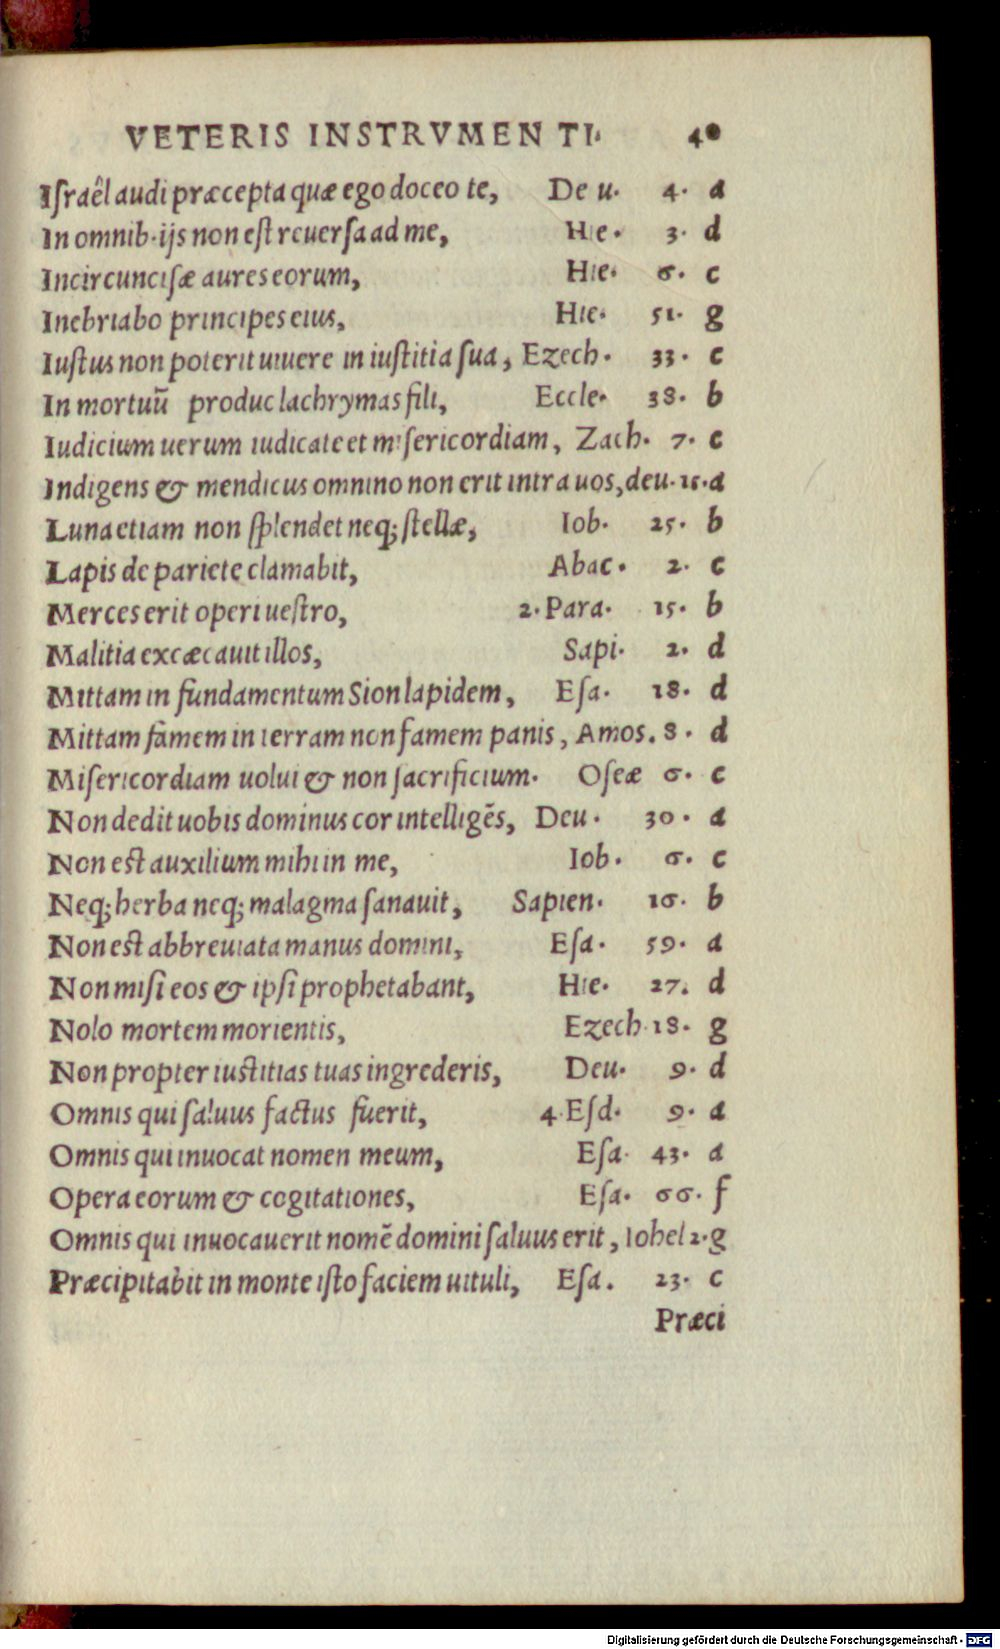 VETERIS INSTRVMENTI. 40
Iſraêl audi præcepta quæ ego doceo te, Deu. 4. a
In omnib. ijs non eſt reuerſa ad me, Hie. 3. d
Incircunciſæ aures eorum, Hie. 6. c
Inebriabo principes eius, Hie. 51. g
Iuſtus non poterit uiuere in iuſtitia ſua, Ezech. 33. c
In mortuū produc lachrymas fili, Eccle. 38. b
Iudicium uerum iudicate et miſericordiam, Zach. 7. c
Indigens & mendicus omnino non erit intra uos, deu. 15. a
Luna etiam non ſplendet neq; ſtellæ, Iob. 25. b
Lapis de pariete clamabit, Abac. 2. c
Merces erit operi ueſtro, 2. Para. 15. b
Malitia excæcauit illos, Sapi. 2. d
Mittam in fundamentum Sion lapidem, Eſa. 18. d
Mittam famem in terram non famem panis, Amos. 8. d
Miſericordiam uolui & non ſacrificium. Oſeæ 6. c
Non dedit uobis dominus cor intelligẽs, Deu. 30. a
Non eſt auxilium mihi in me, Iob. 6. c
Neq; herba neq; malagma ſanauit, Sapien. 16. b
Non eſt abbreuiata manus domini, Eſa. 59. a
Non miſi eos & ipſi prophetabant, Hie. 27. d
Nolo mortem morientis, Ezech. 18. g
Non propter iuſtitias tuas ingrederis, Deu. 9. d
Omnis qui ſaluus factus fuerit, 4. Eſd. 9. a
Omnis qui inuocat nomen meum, Eſa. 43. a
Opera eorum & cogitationes, Eſa. 66. f
Omnis qui inuocauerit nomẽ domini ſaluus erit, Iohel 2. g
Præcipitabit in monte iſto faciem uituli, Eſa. 23. c
Præci
Digitalisierung gefördert durch die Deutsche Forschungsgemeinschaft - DFG